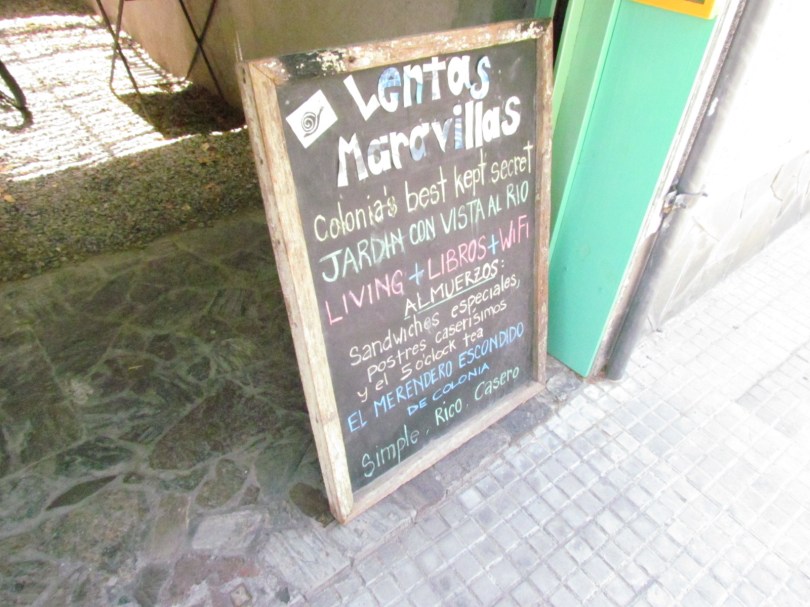 Lentas
Maravillas
Colonia's best kept secret
JARDIN CON VISTA AL RIO
LIVING + LIBROS + WIFI
ALMUERZOS:
Sandwich@s especiales,
postres caserísimos
y el 5 o'clock tea
EL MERENDERO ESCONDIDO
DE COLONIA
Simple. Rico. Casero